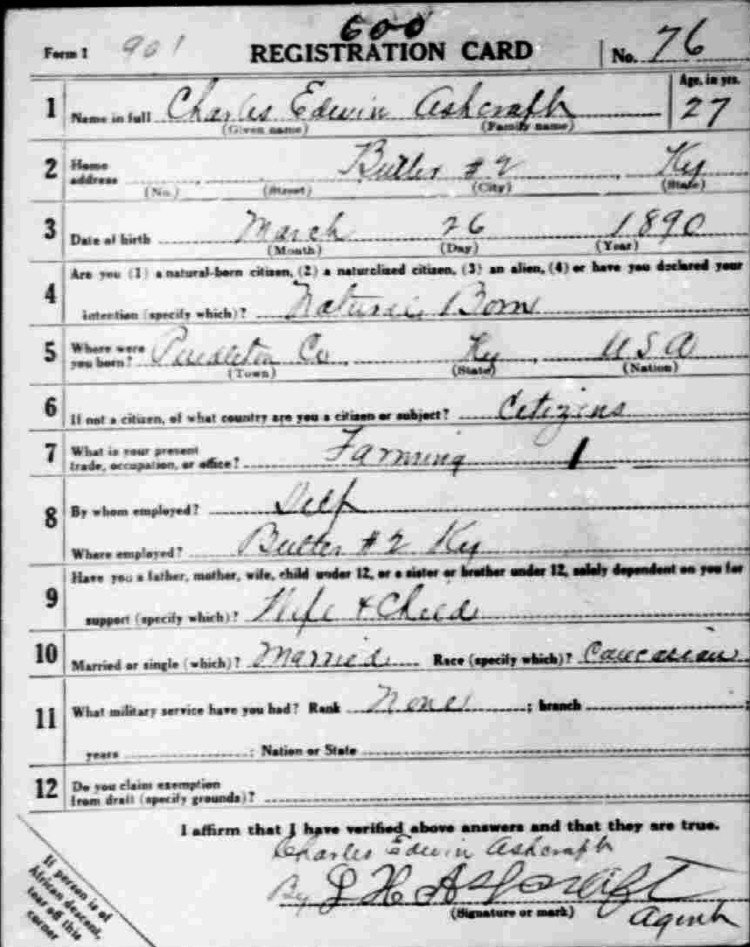 600
Form 1 901 REGISTRATION CARD No. 76
1 Name in full Charles Edwin Ashcraft Age, in yrs. 27
(Given name) (Family name)
2 Home address Butler #2 Ky
(No.) (Street) (City) (State)
3 Date of birth March 26 1890
(Month) (Day) (Year)
4 Are you (1) a natural-born citizen, (2) a naturalized citizen, (3) an alien, (4) or have you declared your
intention (specify which)? Natural Born
5 Where were you born? Pendleton Co Ky USA
(Town) (State) (Nation)
6 If not a citizen, of what country are you a citizen or subject? Citizens
7 What is your present trade, occupation, or office? Farming 1
8 By whom employed? Self
Where employed? Butler #2 Ky
9 Have you a father, mother, wife, child under 12, or a sister or brother under 12, solely dependent on you for
support (specify which)? Wife & Child
10 Married or single (which)? Married Race (specify which)? Caucasian
11 What military service have you had? Rank None ; branch ;
years ; Nation or State
12 Do you claim exemption
from draft (specify grounds)?
I affirm that I have verified above answers and that they are true.
Charles Edwin Ashcraft
By J H Ashcraft
(Signature or mark) Agent
If person is of
African descent,
tear off this
corner